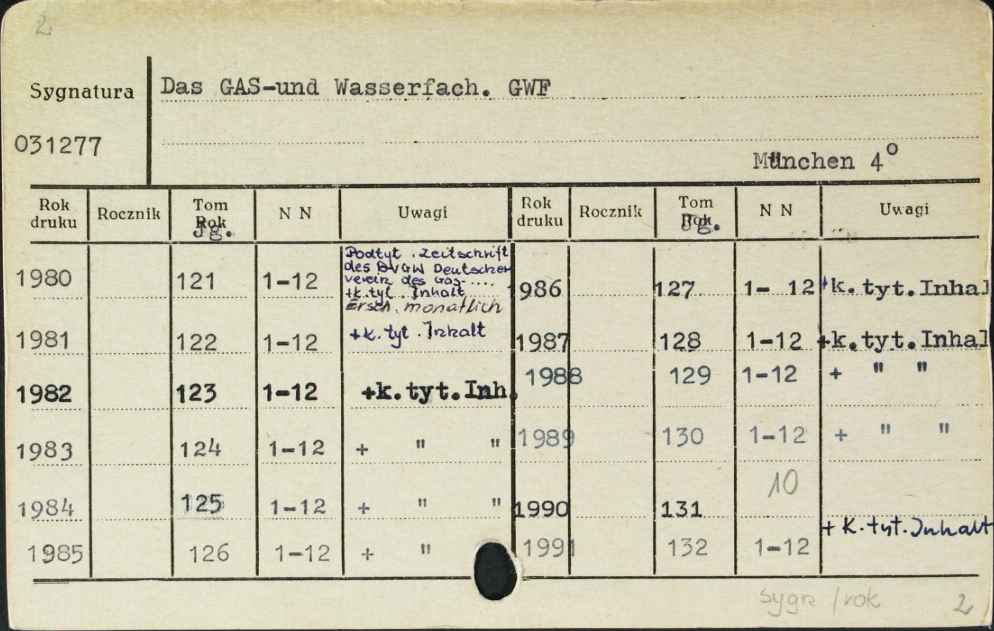 2
Sygnatura
Das GAS-und Wasserfach. GWF
031277
München 4°
Rok druku Rocznik Tom Rok Jg. N N Uwagi Rok druku Rocznik Tom Rok Jg. N N Uwagi
Podtyt. Zeitschrift
des DVGW Deutscher
verein des Gas-....
+k.tyt. Inhalt
Ersch. monatlich
1980 121 1-12
1981 122 1-12 +k.tyt. Inhalt
1982 123 1-12 +k.tyt.Inh.
1983 124 1-12 + " "
1984 125 1-12 + " "
1985 126 1-12 + "
986 127 1- 12 +k.tyt.Inhal
1987 128 1-12 +k.tyt.Inhal
1988 129 1-12 + " "
1989 130 1-12 + " "
1990 131 10
1991 132 1-12 + K.tyt.Inhalt
sygn /rok 2